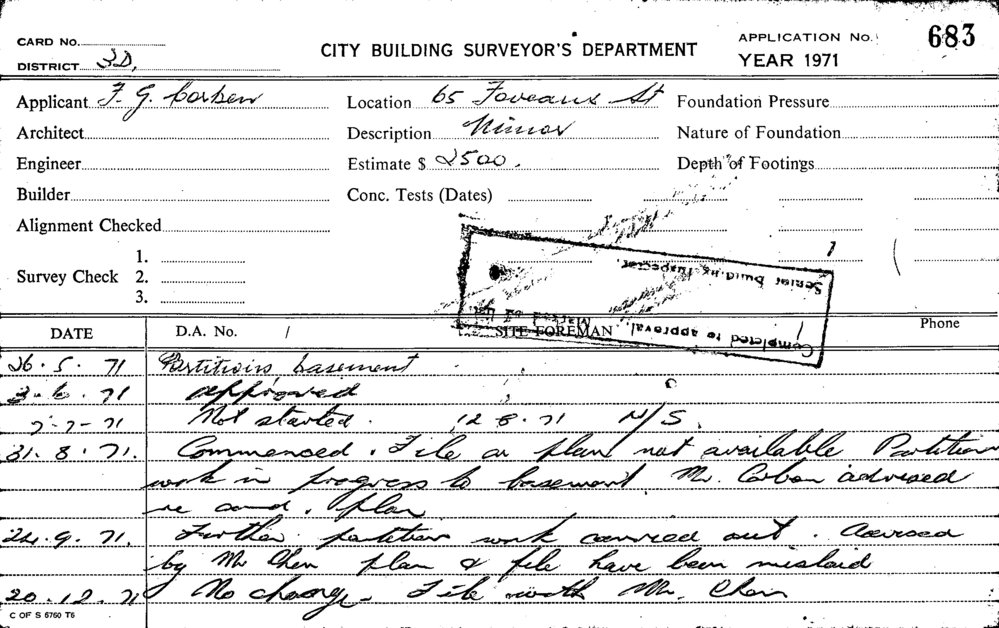 CARD No.
DISTRICT 3D,
CITY BUILDING SURVEYOR'S DEPARTMENT
APPLICATION No. 683
YEAR 1971
Applicant F. G. Corben
Location 65 Foveaux St
Foundation Pressure
Architect
Description Minor
Nature of Foundation
Engineer
Estimate $ 2500.
Depth of Footings
Builder
Conc. Tests (Dates)
Alignment Checked
Survey Check
1.
2.
3.
Senior Building Inspector.
Completed to approval.
DATE
D.A. No. /
SITE FOREMAN
Phone
26.5.71 Partitions basement
3.6.71 approved
7-7-71 Not started. 12 8. 71 N/S.
31.8.71. Commenced. File or plan not available Partition
work in progress to basement. Mr. Corben advised
re plan
24.9.71. Further partition work carried out. Advised
by Mr Chen plan & file have been mislaid
20.12.71 No change. File with Mr. Chen
C OF S 5760 T5